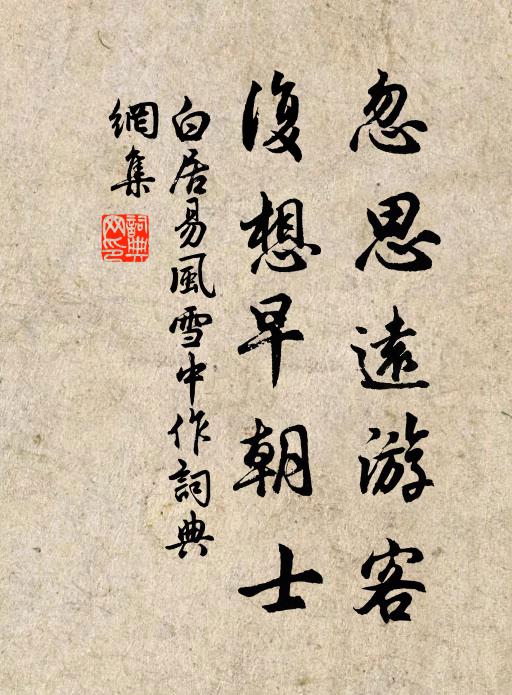 忽思遠游客
復想早朝士
白居易風雪中作詞典
網集
詞典
网印